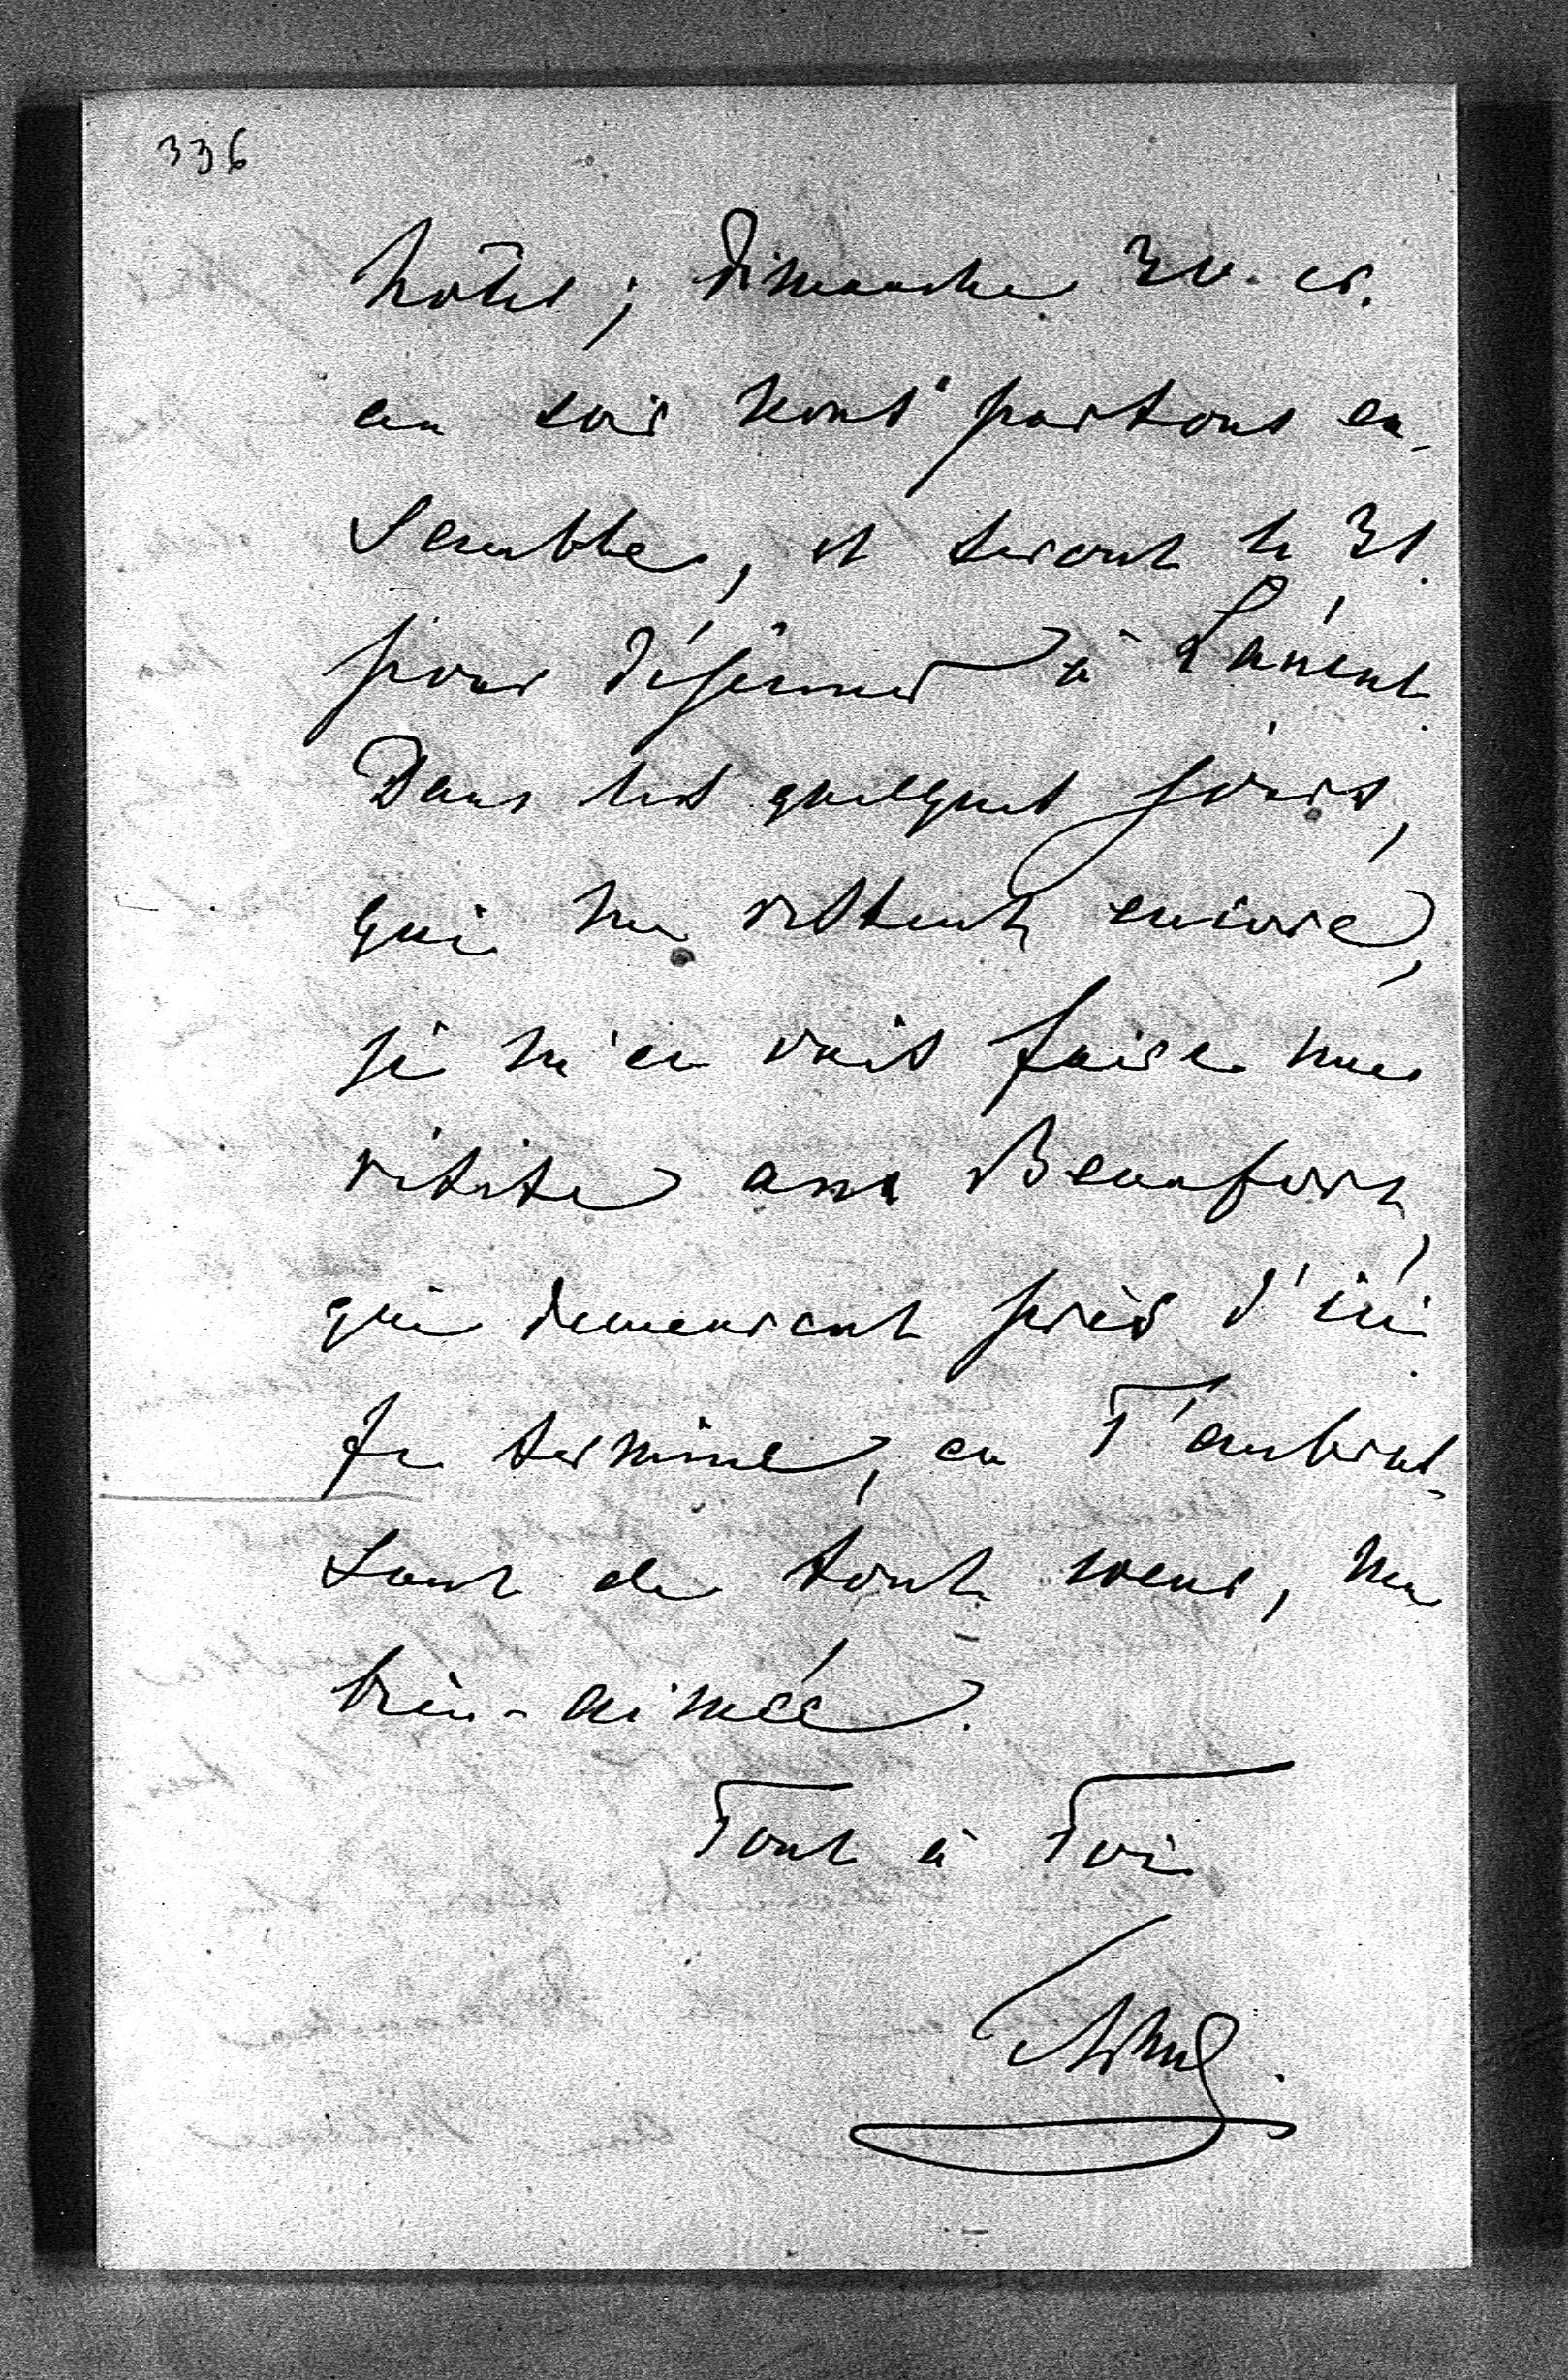 336
hôtes; Dimanche 30. cr.
au soir nous partons en-
semble, et serons le 31.
pour déjeuner à Láncut.
Dans les quelques jours,
qui me restent encore,
je m'en vais faire une
visite aux Beaufort,
qui demeurent près d'ici.
Je termine, en T'embras-
sant de tout coeur, ma
bien-aimée.
Tout à Toi